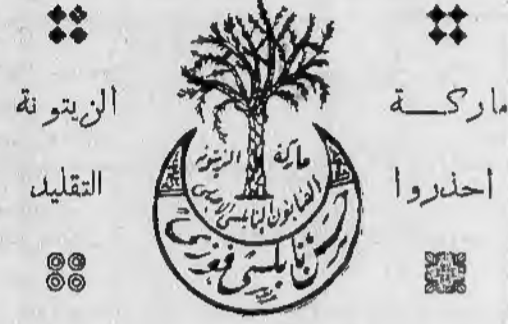 ماركـــة الزيتونة
احذروا التقليد
ماركة الزيتونه
الصابون النابلسي الاصلي
نابلسي